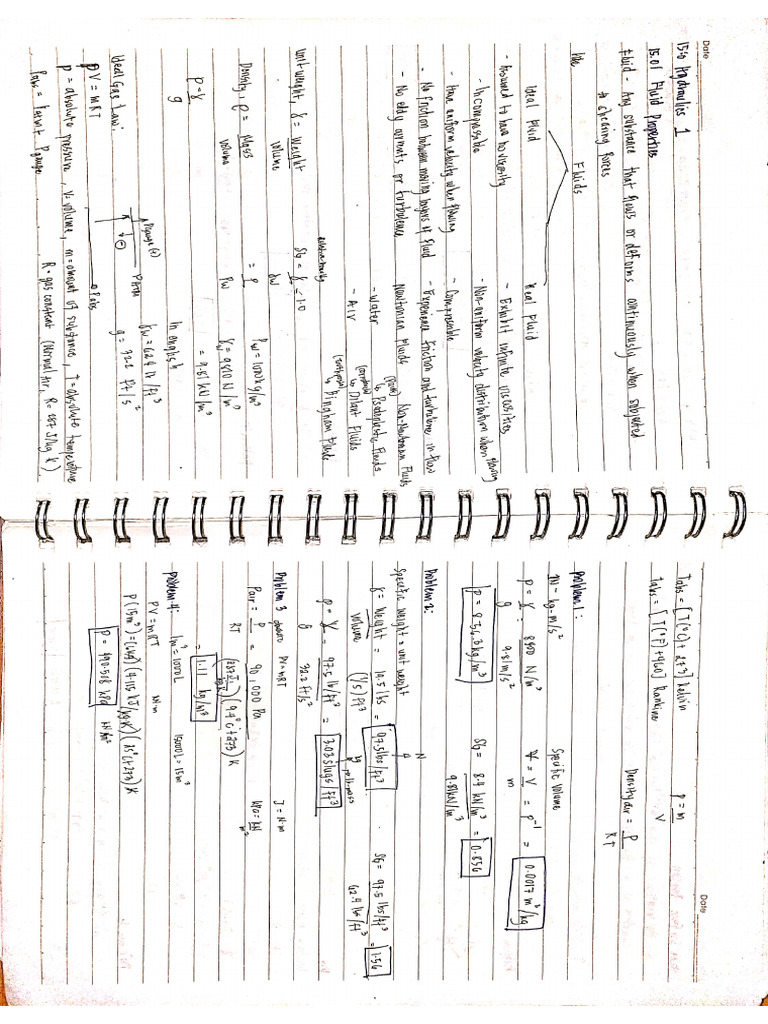 Date
15.0 Hydraulics 1
15.01 Fluid Properties
Fluid - Any substance that flows or deforms continuously when subjected
to shearing forces
Fluids
Ideal Fluid
Real Fluid
- Assumed to have no viscosity
- Incompressible
- Have uniform velocity when flowing
- No friction between moving layers of fluid
- No eddy currents or turbulence
- Exhibit infinite viscosities
- Non-uniform velocity distribution when flowing
- Compressible
- Experience friction and turbulence in flow
Newtonian Fluids
- water
- Air
Non-Newtonian Fluids
↳ Pseudoplastic Fluids
↳ Dilant Fluids
↳ Bingham Fluids
Unit weight, γ = Weight / volume
SG = γ / γw = ρ / ρw ≤ 1.0
Density, ρ = Mass / volume
ρw = 1000 kg/m³
γw = 9810 N/m³
= 9.81 kN/m³
ρ = γ / g
In english
γw = 62.4 lb/ft³
g = 32.2 ft/s²
Ideal Gas Law:
PV = mRT
Pgauge (+)
Patm
(-)
Pabs
P = absolute pressure, V = volume, m = amount of substance, T = absolute temperature
Pabs = Patm + Pgauge
R = gas constant (Normal air, R = 287 J/kg K)
Date
Tabs = [T(°C) + 273] Kelvin
Tabs = [T(°F) + 460] Rankine
ρ = m / V
Density air = P / RT
Problem 1:
1N - kg-m/s²
ρ = γ / g = 8400 N/m³ / 9.81 m/s²
ρ = 856.3 kg/m³
Specific Volume
V = V / m = ρ⁻¹ = 0.0017 m³/kg
SG = 8.4 kN/m³ / 9.81 kN/m³ = 0.856
Problem 2:
Specific weight = unit weight
γ = Weight / volume = 19.5 lbs / (1/5) ft³ = 97.5 lbs/ft³
SG = 97.5 lbs/ft³ / 62.4 lbs/ft³ = 1.56
ρ = γ / g = 97.5 lb/ft³ / 32.2 ft/s² = 3.03 slugs/ft³
Problem 3
PV = mRT
J = N·m
ρair = P / RT = 90,000 Pa / (287 J/kg·K)(9.4°C + 273)K
kPa = kN / m²
= 1.11 kg/m³
Problem 4:
1m³ = 1000L
15000L = 15m³
PV = mRT
kN·m
P = 490.508 kPa
kN/m²